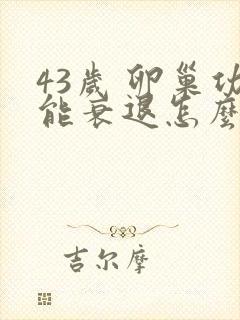 43歲 卵巢功
能衰退怎麼
吉尔摩